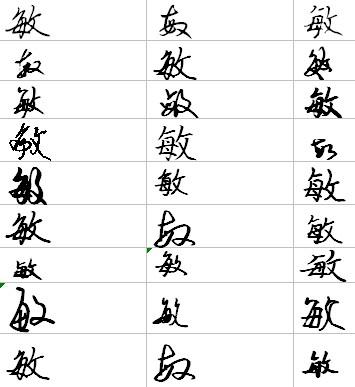 敏 敏 敏
敏 敏 敏
敏 敏 敏
敏 敏 敏
敏 敏 敏
敏 敏 敏
敏 敏 敏
敏 敏 敏
敏 敏 敏